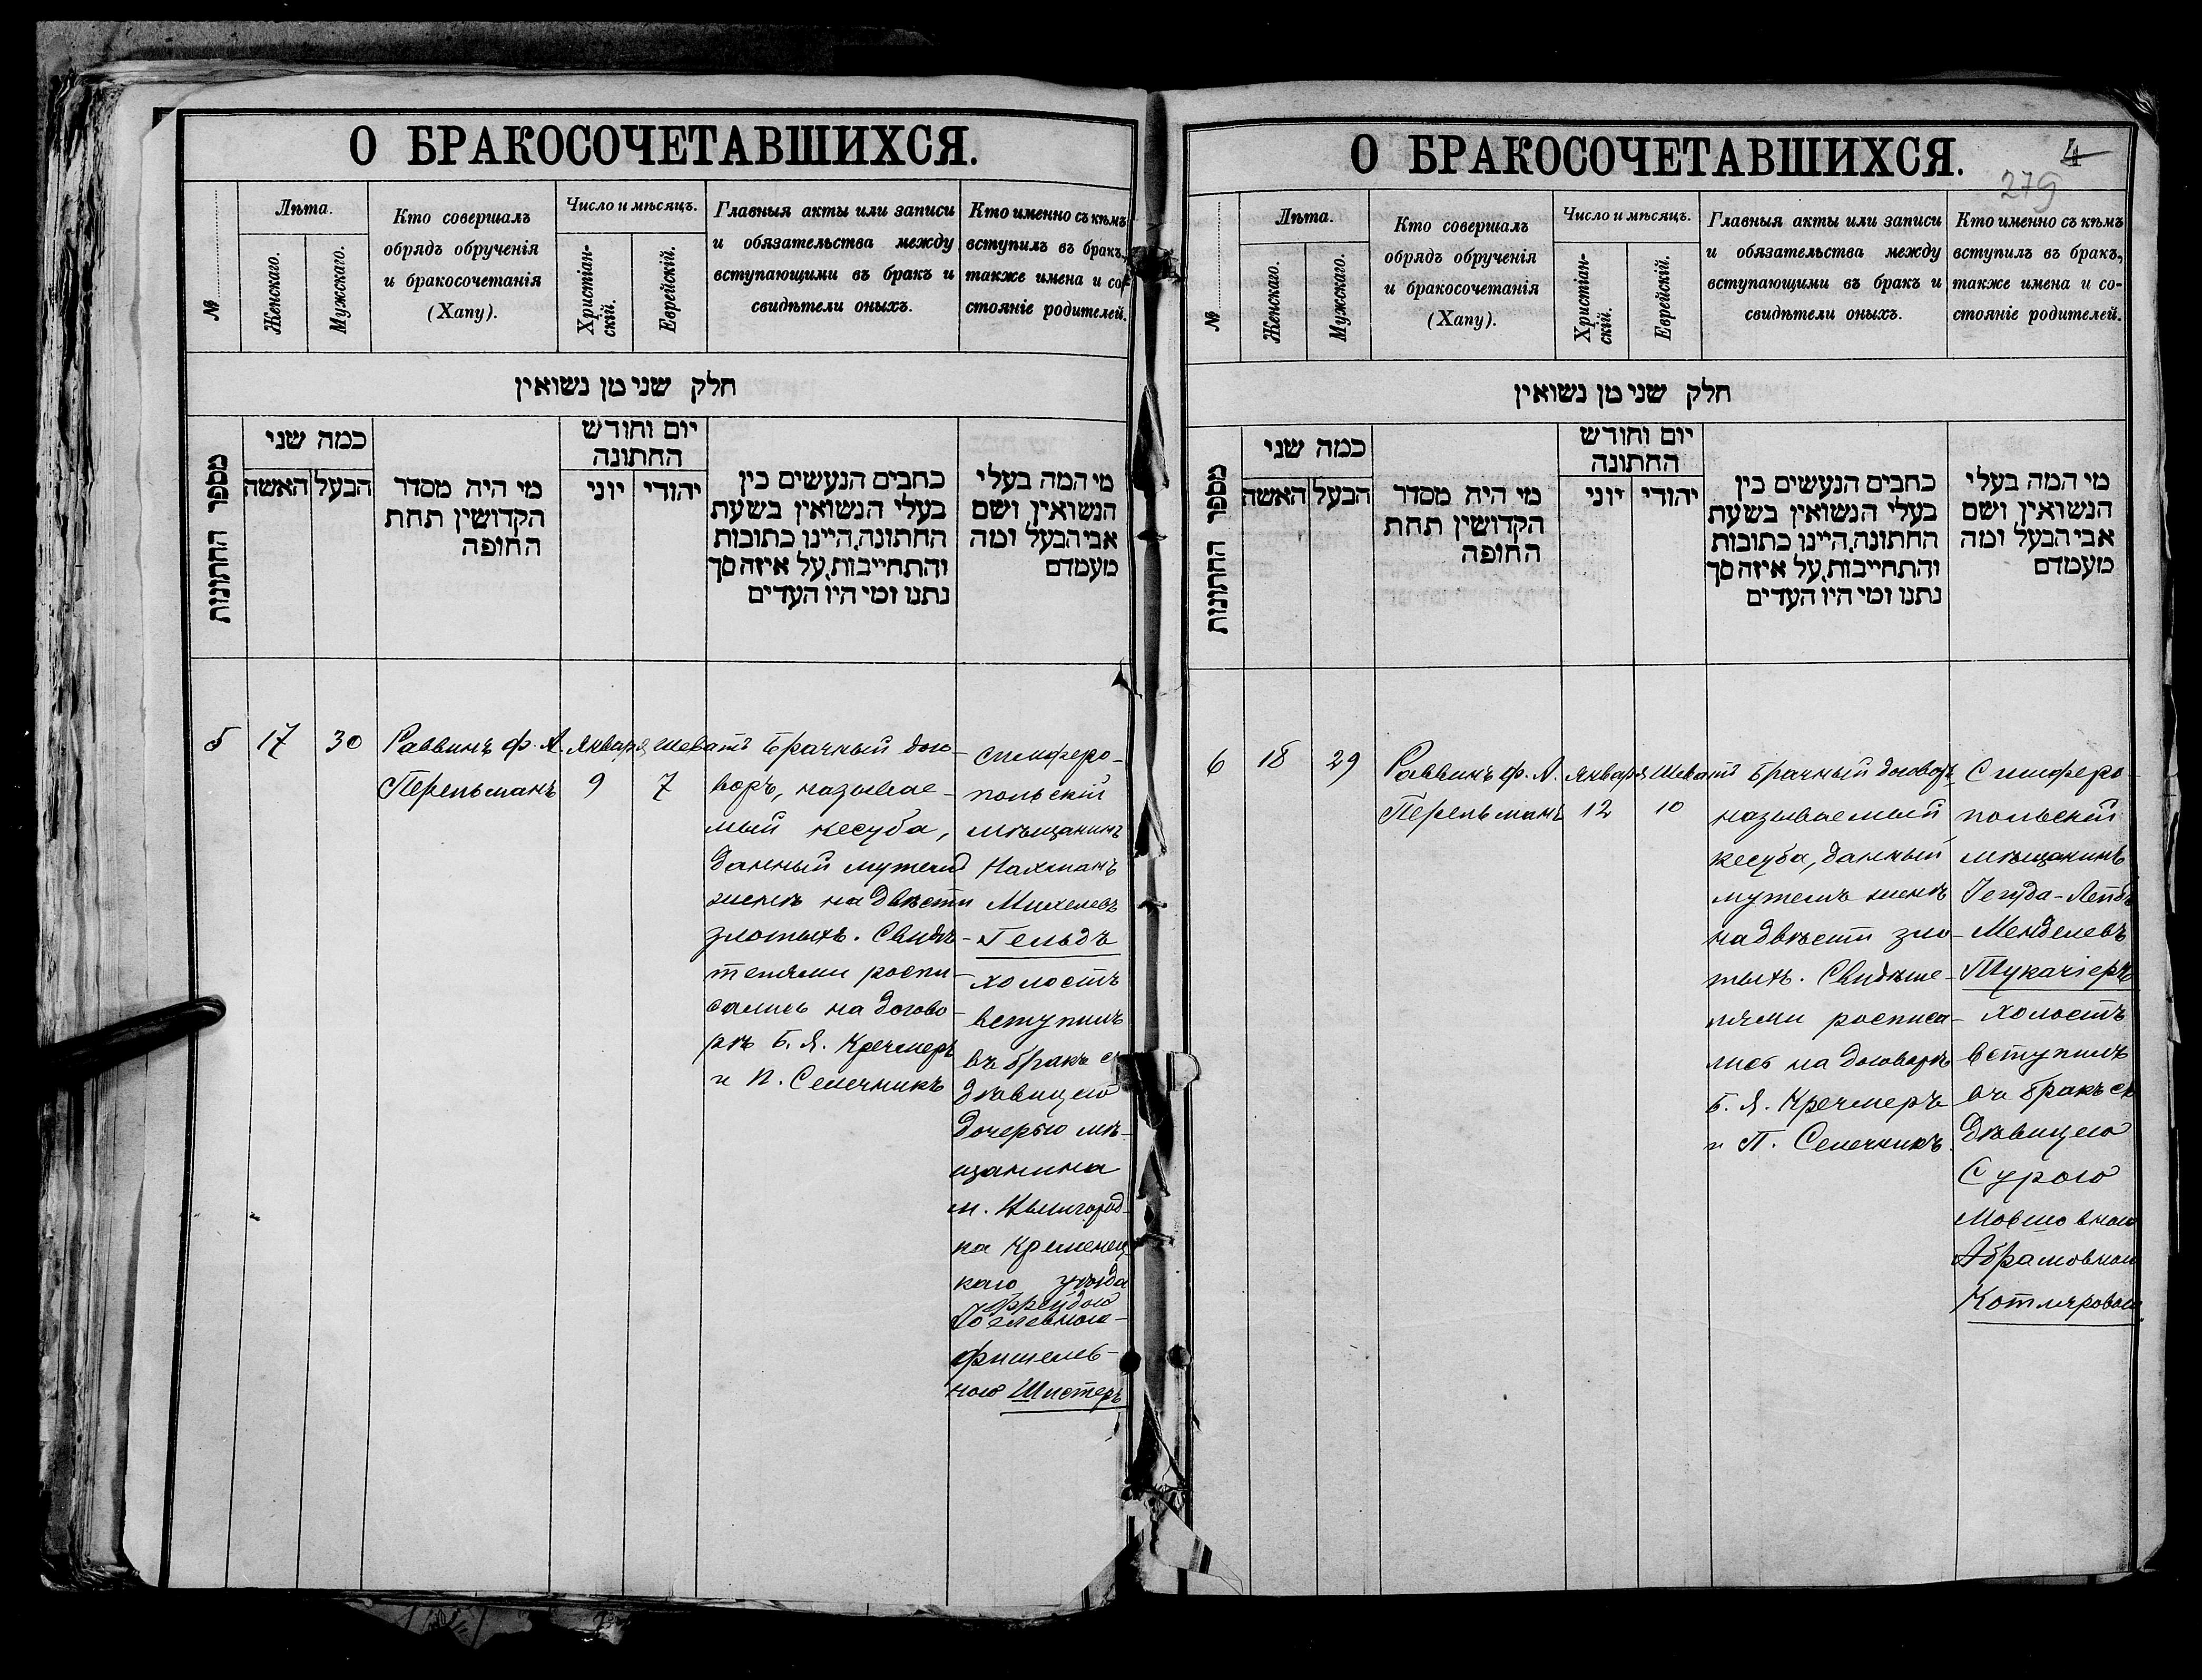 О БРАКОСОЧЕТАВШИХСЯ.
№
Лѣта.
Женскаго.
Мужскаго.
Кто совершалъ
обрядъ обрученія
и бракосочетанія
(Хапу).
Число и мѣсяцъ.
Христіан-
скій.
Еврейскій.
Главныя акты или записи
и обязательства между
вступающими въ бракъ и
свидѣтели оныхъ.
Кто именно съ кѣмъ
вступилъ въ бракъ,
также имена и со-
стояніе родителей.
חלק שני מן נשואין
מספר החתונות
כמה שני
האשה
הבעל
מי היה מסדר
הקדושין תחת
החופה
יום וחודש
החתונה
יוני
יהודי
כתבים הנעשים בין
בעלי הנשואין בשעת
החתונה, היינו כתובות
והתחייבות, על איזה סך
נתנו ומי היו העדים
מי המה בעלי
הנשואין ושם
אבי הבעל ומה
מעמדם
5
17
30
Раввинъ Ф. А.
Перельманъ
Января
9
Шеватъ
7
Брачный дого-
воръ, называе-
мый кесуба,
данный мужемъ
женѣ на двѣсти
злотыхъ. Свидѣ-
телями роспи-
сались на догово-
рѣ Б. Я. Кречмеръ
и П. Селечникъ
Симферо-
польскій
мѣщанинъ
Нахманъ
Михелевъ
Гельдъ
холостъ
вступилъ
въ бракъ съ
дѣвицею
дочерью мѣ-
щанина
м.
ка Кременец-
каго уѣзда
Фрейдою
Фишелев-
ною Шистеръ
О БРАКОСОЧЕТАВШИХСЯ.
4
279
№
Лѣта.
Женскаго.
Мужскаго.
Кто совершалъ
обрядъ обрученія
и бракосочетанія
(Хапу).
Число и мѣсяцъ.
Христіан-
скій.
Еврейскій.
Главныя акты или записи
и обязательства между
вступающими въ бракъ и
свидѣтели оныхъ.
Кто именно съ кѣмъ
вступилъ въ бракъ,
также имена и со-
стояніе родителей.
חלק שני מן נשואין
מספר החתונות
כמה שני
האשה
הבעל
מי היה מסדר
הקדושין תחת
החופה
יום וחודש
החתונה
יוני
יהודי
כתבים הנעשים בין
בעלי הנשואין בשעת
החתונה, היינו כתובות
והתחייבות, על איזה סך
נתנו ומי היו העדים
מי המה בעלי
הנשואין ושם
אבי הבעל ומה
מעמדם
6
18
29
Раввинъ Ф. А.
Перельманъ
Января
12
Шеватъ
10
Брачный договоръ
называемый
кесуба, данный
мужемъ женѣ
на двѣсти зло-
тыхъ. Свидѣте-
лями росписа-
лись на договорѣ
Б. Я. Кречмеръ
и П. Селечникъ.
Симферо-
польскій
мѣщанинъ
Іегуда-Лейбъ
Менделевъ
Тукачіеръ
холостъ
вступилъ
въ бракъ съ
дѣвицею
Сурою
Мовшовною
Абрамовною
Котляровою.